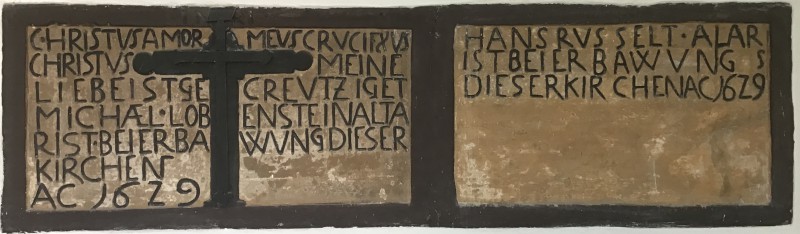 CHRISTUS AMOR MEUS CRUCIFIXUS
CHRISTUS MEINE
LIEBE IST GECREUTZIGET
MICHÆL·LOBENSTEIN ALTA
RIST·BEI ERBAWUNG DIESER
KIRCHEN
AC 1629
HANS RUSSELT·ALAR
IST BEI ERBAWUNG
DIESER KIRCHEN AC 1629